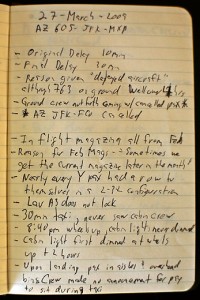 27-March-2009
AZ 605-JFK-MXP
- Original Delay 10min
- Final Delay 20min
- Reason given "delayed aircraft"
although 763 on ground
- Ground crew not with
* AZ JFK-FCO Cancelled
- In flight magazine all from Feb
- Reason for Feb Mags - "Sometimes we
get the current magazine later in the month"
- Nearly every Y pax had a row to
themselves in a 2-?2 configuration
- Lav A3 does not lock
- 30min taxi, never saw cabin crew
- 8:40pm wheels up, cabin light never dimmed
- Cabin light first dimmed at wheels
up + 2 hours
- Upon landing pax in aisles & overhead
bins Crew made no announcement for pax
to sit during taxi